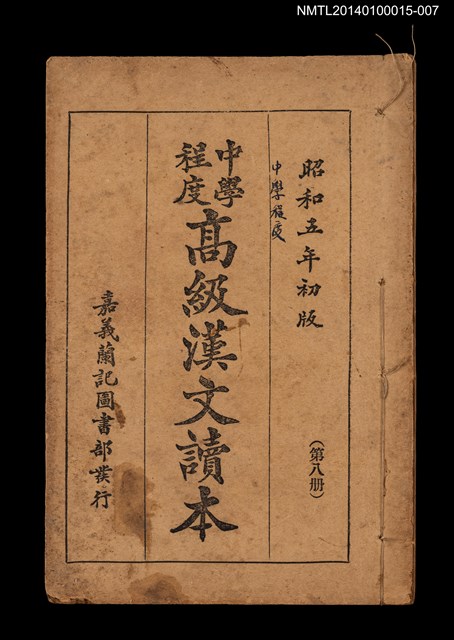 NMTL20140100015-007
昭和五年初版
（第八册）
中學程度
中學程度
高級漢文讀本
嘉義蘭記圖書部發行